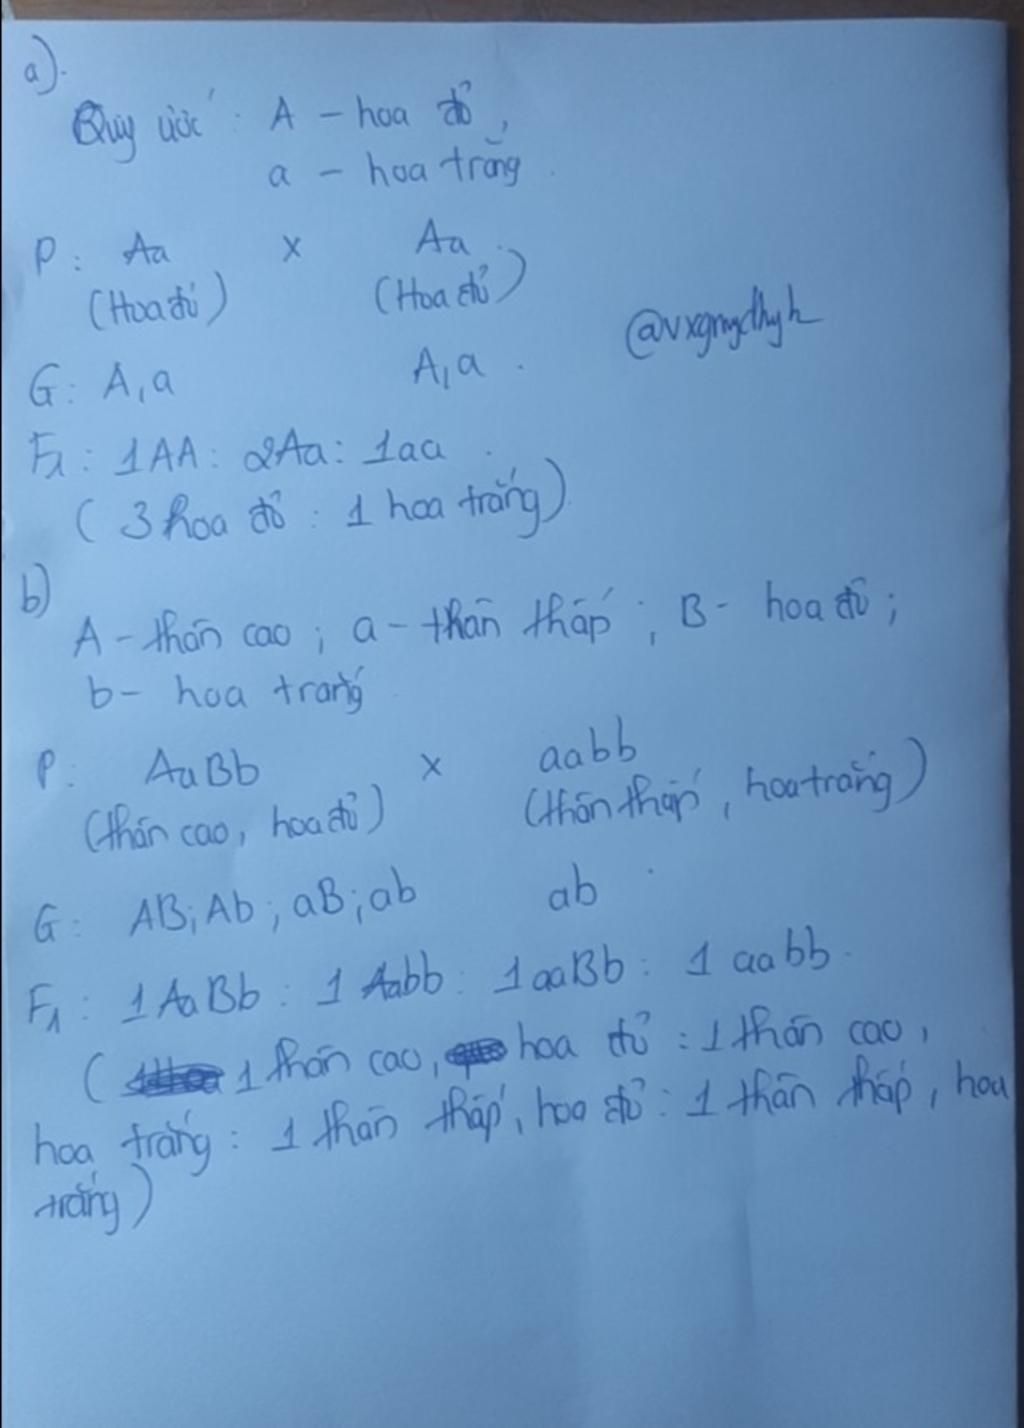 a).
Quy ước : A - hoa đỏ,
a - hoa trắng.
P: Aa x Aa.
(Hoa đỏ) (Hoa đỏ)
@vxgnydhyh
G: A, a A, a.
F1: 1AA: 2Aa: 1aa.
( 3 hoa đỏ : 1 hoa trắng).
b)
A - thân cao ; a - thân thấp ; B - hoa đỏ ;
b - hoa trắng
P: AaBb x aabb
(thân cao, hoa đỏ) (thân thấp, hoa trắng)
G: AB; Ab; aB; ab ab.
F1: 1 AaBb : 1 Aabb : 1 aaBb : 1 aabb.
( 1 thân cao, hoa đỏ : 1 thân cao,
hoa trắng : 1 thân thấp, hoa đỏ : 1 thân thấp, hoa
trắng)